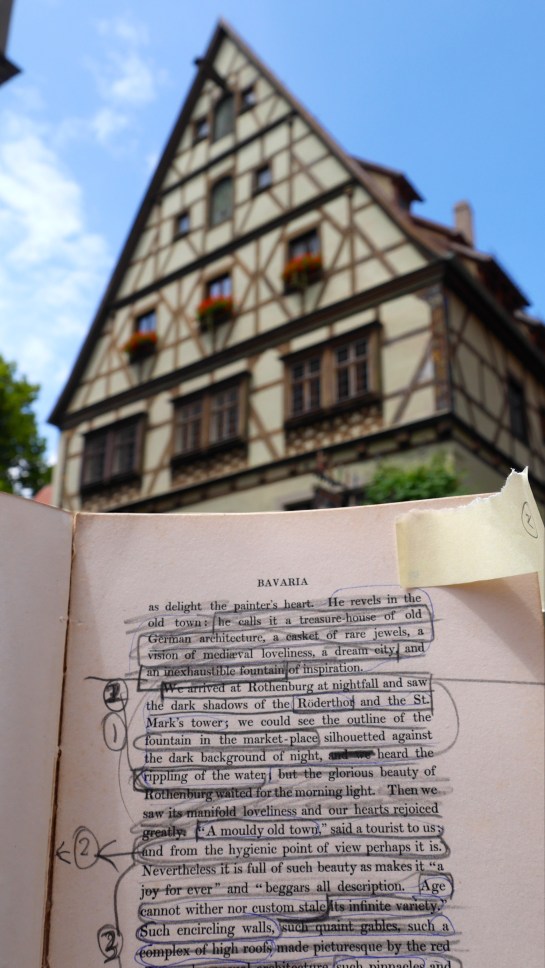 BAVARIA
as delight the painter's heart. He revels in the
old town: he calls it a treasure-house of old
German architecture, a casket of rare jewels, a
vision of mediæval loveliness, a dream city, and
an inexhaustible fountain of inspiration.
We arrived at Rothenburg at nightfall and saw
the dark shadows of the Röderthor and the St.
Mark's tower; we could see the outline of the
fountain in the market-place silhouetted against
the dark background of night, and we heard the
rippling of the water; but the glorious beauty of
Rothenburg waited for the morning light. Then we
saw its manifold loveliness and our hearts rejoiced
greatly. "A mouldy old town," said a tourist to us;
and from the hygienic point of view perhaps it is.
Nevertheless it is full of such beauty as makes it "a
joy for ever" and "beggars all description. Age
cannot wither nor custom stale its infinite variety."
Such encircling walls, such quaint gables, such a
complex of high roofs made picturesque by the red
architecture (such pinnacles and
2
1
2
2